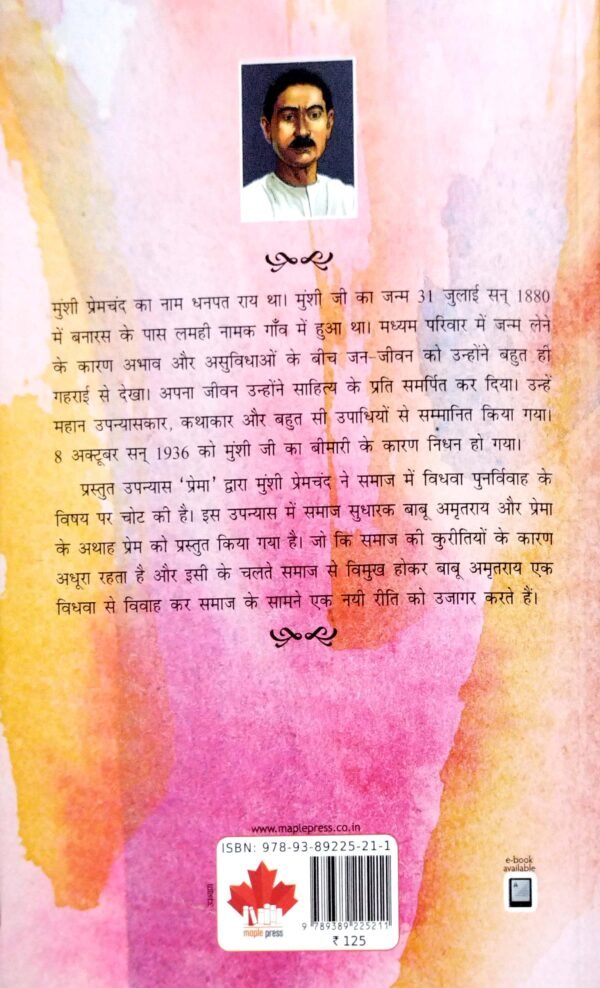 मुंशी प्रेमचंद का नाम धनपत राय था। मुंशी जी का जन्म 31 जुलाई सन् 1880
में बनारस के पास लमही नामक गाँव में हुआ था। मध्यम परिवार में जन्म लेने
के कारण अभाव और असुविधाओं के बीच जन-जीवन को उन्होंने बहुत ही
गहराई से देखा। अपना जीवन उन्होंने साहित्य के प्रति समर्पित कर दिया। उन्हें
महान उपन्यासकार, कथाकार और बहुत सी उपाधियों से सम्मानित किया गया।
8 अक्टूबर सन् 1936 को मुंशी जी का बीमारी के कारण निधन हो गया।
प्रस्तुत उपन्यास ‘प्रेमा’ द्वारा मुंशी प्रेमचंद ने समाज में विधवा पुनर्विवाह के
विषय पर चोट की है। इस उपन्यास में समाज सुधारक बाबू अमृतराय और प्रेमा
के अथाह प्रेम को प्रस्तुत किया गया है। जो कि समाज की कुरीतियों के कारण
अधूरा रहता है और इसी के चलते समाज से विमुख होकर बाबू अमृतराय एक
विधवा से विवाह कर समाज के सामने एक नयी रीति को उजागर करते हैं।
www.maplepress.co.in
ISBN: 978-93-89225-21-1
maple press
9 789389 225211
₹ 125
e-book
available